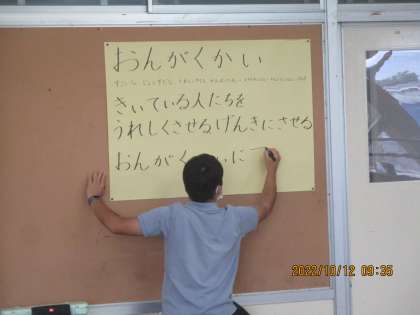 おんがくかい
きいている人たちを
うれしくさせるげんきにさせる
おんがく　いに
2022/10/12 09:35